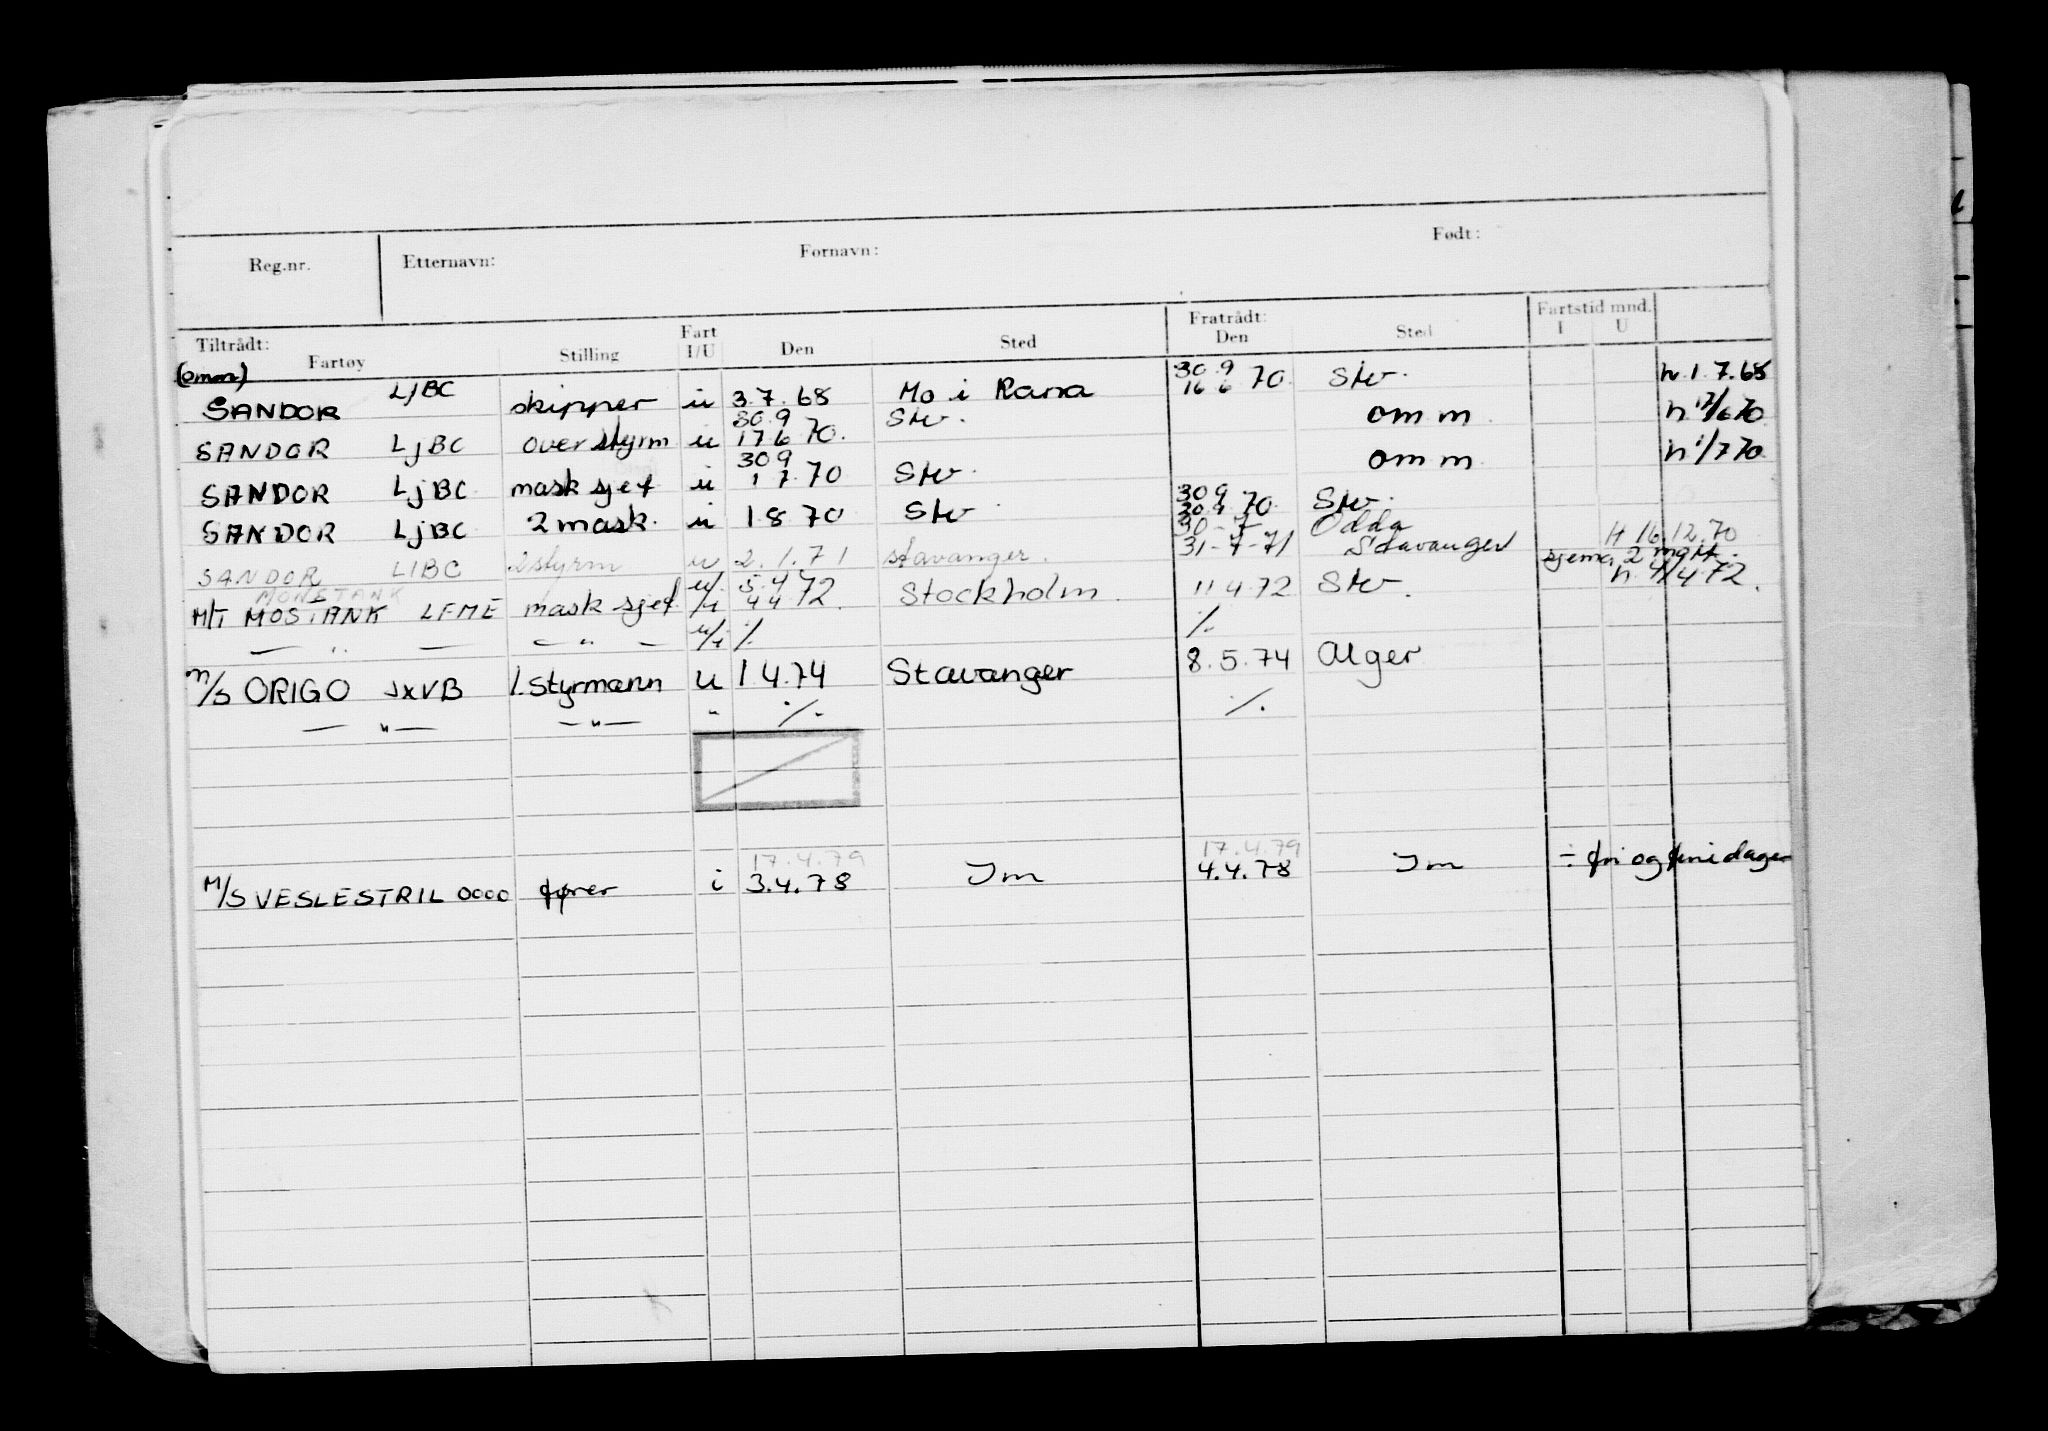 Reg.nr. Etternavn: Fornavn: Født:
Tiltrådt: Fartøy Stilling Fart I/U Den Sted Fratrådt: Den Sted Fartstid mnd. I U
SANDOR LJBC skipper u 3.7.68 Mo i Rana 30.9 16 6 70. Stv. h.1.7.68
SANDOR LJBC overstyrm u 30.9 17 6 70. Stv. omm h 17/6 70
SANDOR LJBC mask sjef u 30 9 1 7 70 Stv omm h 1/7 70
SANDOR LJBC 2 mask. u 1.8.70 Stv 30 9 70. Stv.
SANDOR LJBC 2styrm u 2.1.71 stavanger. 30-7- 31-7-71 Odda Stavanger H 16.12.70
MONSTANK
M/T MOSTANK LFME mask sjef u/i 5.4 4 4 72. Stockholm. 11 4 72 Stv. sjema 2 h. 4/4 72.
— " — — " — u/i ·/. ·/.
M/S ORIGO JXVB 1.Styrmann u 1 4.74 Stavanger 8.5.74 Alger
— " — — " — " ·/. ·/.
17.4.79 17.4.79
M/S VESLESTRIL 0000 fører i 3.4.78 Im 4.4.78 Im ÷ fri og feriedager